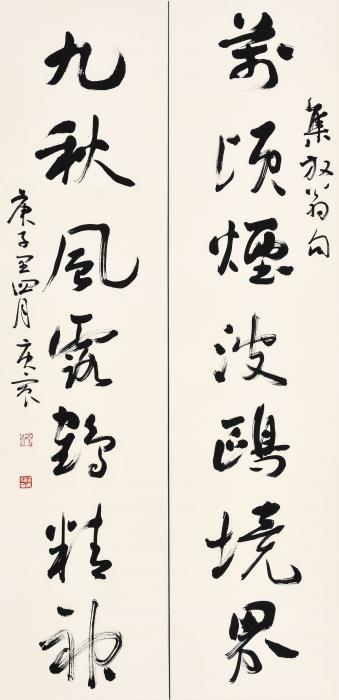 萬頃煙波鷗境界
集放翁句
九秋風露鶴精神
庚子閏四月